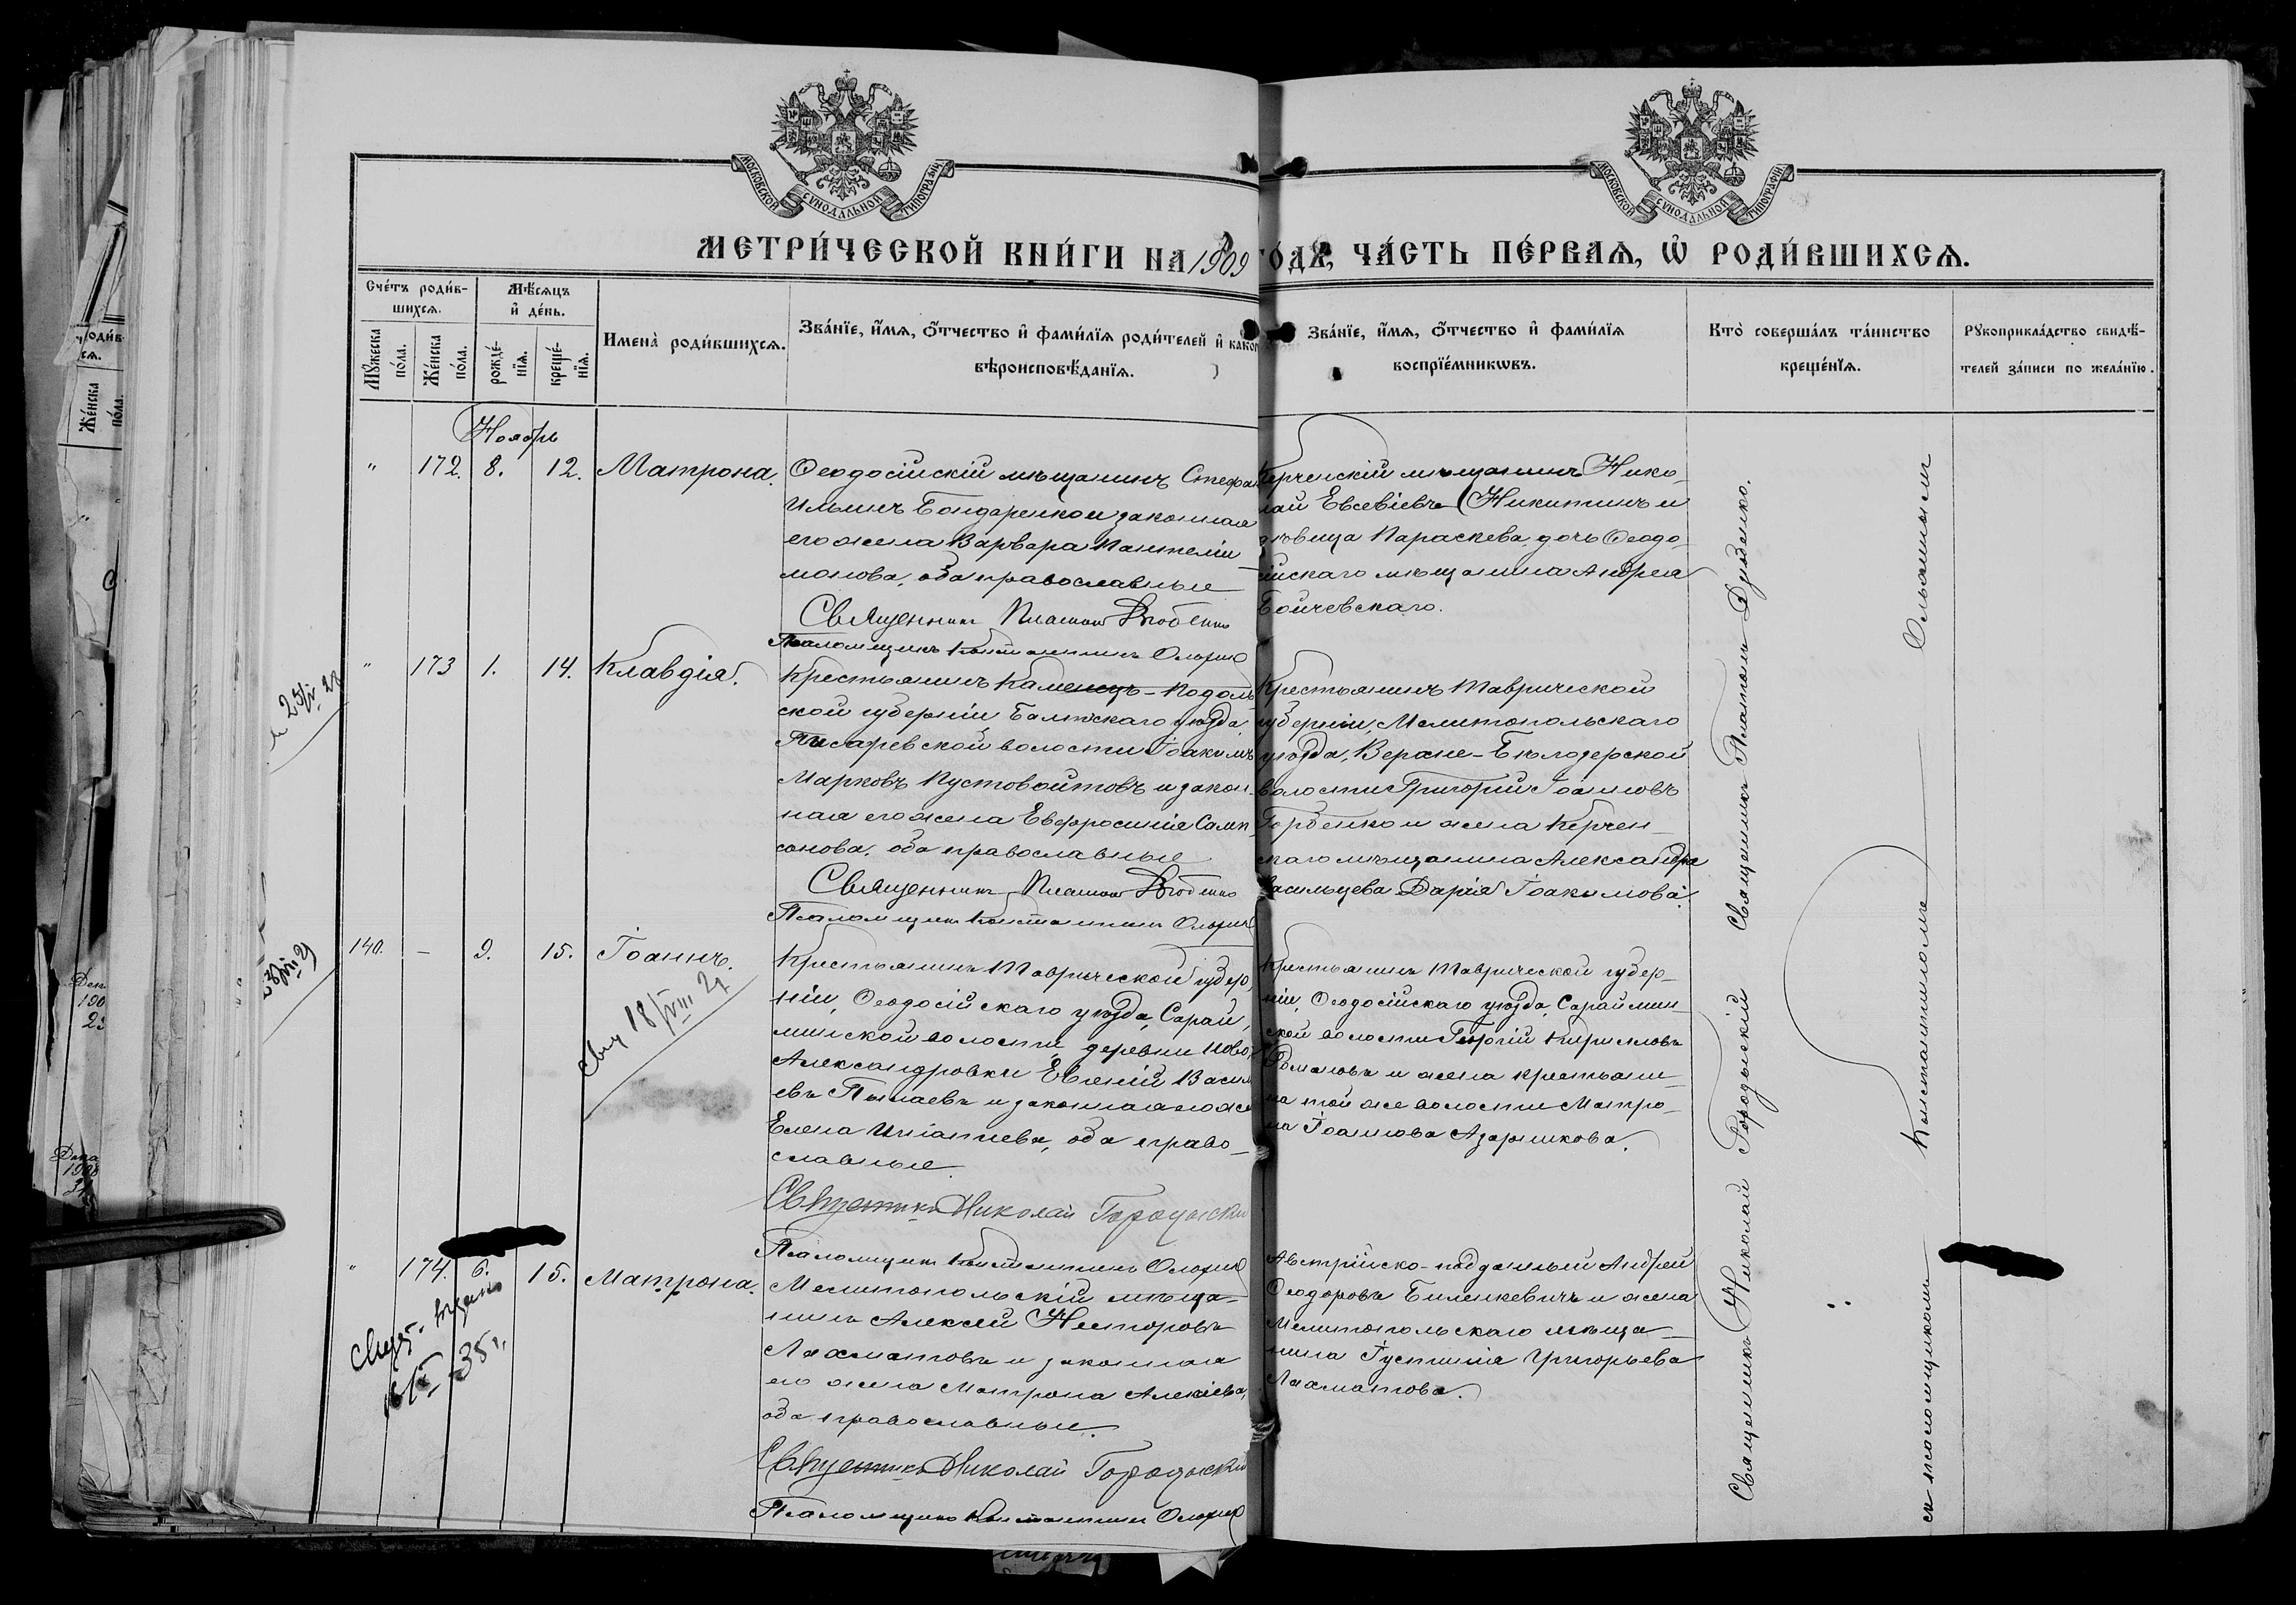 МОСКОВСКОЙ СѴНОДАЛЬНОЙ ТИПОГРАФІИ
МОСКОВСКОЙ СѴНОДАЛЬНОЙ ТИПОГРАФІИ
МЕТРИ́ЧЕСКОЙ КНИ́ГИ НА 1909 ГОДꙊ, ЧА́СТЬ ПЕ́РВАѦ, Ѡ҆ РОДИ́ВШИХСѦ.
Сче́тъ роди́в-
шихсѧ.
Мꙋ́жеска по́ла.
Же́нска по́ла.
Мѣ́сѧцъ
и҆ де́нь.
рожде́-нїѧ.
креще́-нїѧ.
Имена̀ роди́вшихсѧ.
Зва́нїе, и҆́мѧ, ѻ҆́тчество и҆ фами́лїѧ роди́телей и҆ како
вѣроисповѣ́данїѧ.
Зва́нїе, и҆́мѧ, ѻ҆́тчество и҆ фами́лїѧ
воспрїе́мникѡвъ.
Кто̀ соверша́лъ та́инство
креще́нїѧ.
Рꙋкоприкла́дство свидѣ́-
телей за́писи по жела́нїю.
Ноябрь
" 172. 8. 12. Матрона.
Ѳеодосійскій мѣщанинъ Стефан
Ильинъ Бондаренко и законная
его жена Варвара Пантелии-
монова, оба православные
Священникъ Платонъ Дзюбенко
Псаломщикъ Константинъ
Керченскій мѣщанинъ Нико-
лай Евсевіевъ Никитинъ и
дѣвица Параскева, дочь Ѳеодо-
сійскаго мѣщанина Андрея
Бойчевскаго.
" 173 1. 14. Клавдія.
Крестьянинъ Каменецъ-Подоль
ской губерніи Балтскаго уѣзда
Писаревской волости Іоакимъ
Марковъ Пустовойтовъ и закон-
ная его жена Евфросинія Самп
сонова, оба православные
Священникъ Платонъ Дзюбенко
Псаломщикъ Константинъ
Крестьянинъ Таврической
губерніи, Мелитопольскаго
уѣзда, Верхне-Бѣлозерской
волости Григорій Іоанновъ
Горбенко и жена Керчен-
скаго мѣщанина Александра
Васильцева Дарія Іоакимова.
140. – 9. 15. Іоаннъ.
Крестьянинъ Таврической губер,
ніи, Ѳеодосійскаго уѣзда, Сарай,
минской волости, деревни Ново,
Александровки Евгеній Васил
евъ Пылаевъ и законная его же
Елена Игнатіева, оба право-
славные.
Священникъ Николай Городыскій
Псаломщикъ Константинъ
Крестьянинъ Таврической губер-
ніи, Ѳеодосійскаго уѣзда, Сараймин-
ской волости Георгій Кирилловъ
Романовъ и жена крестьяни-
на той же волости Матро-
на Іоаннова Азарникова.
" 174. 6. 15. Матрона.
Мелитопольскій мѣща-
нинъ Алексей Несторовъ
Лахматовъ и законная
его жена Матрона Алексіева,
оба православные.
Священникъ Николай Городыскій
Псаломщикъ Константинъ
Австрійско-подданный Андрей
Ѳеодоровъ Биленкевичъ и жена
Мелитопольскаго мѣща-
нина Іустинія Григорьева
Лахматова.
Священникъ Николай Городыскій
Священникъ Платонъ Дзюбенко.
съ псаломщикомъ Константиномъ